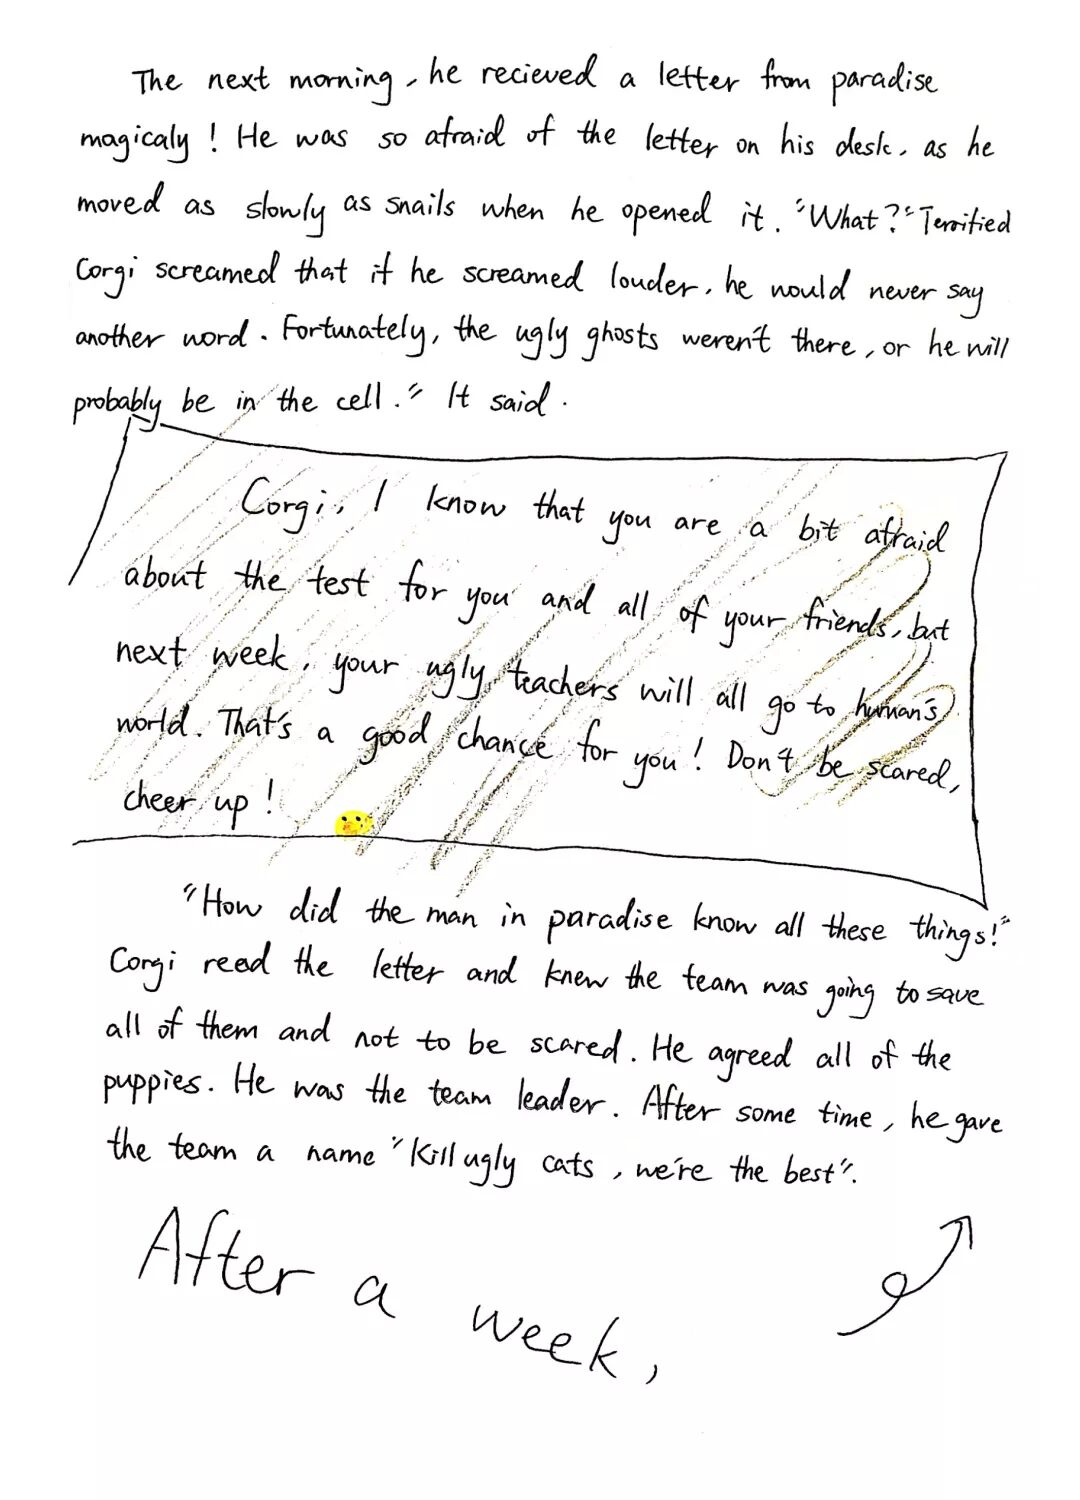 The next morning, he recieved a letter from paradise
magicaly! He was so afraid of the letter on his desk, as he
moved as slowly as snails when he opened it. "What?" Terrified
Corgi screamed that if he screamed louder, he would never say
another word. Fortunately, the ugly ghosts weren't there, or he will
probably be in the cell." It said.
Corgi, I know that you are a bit afraid
about the test for you and all of your friends, but
next week, your ugly teachers will all go to human's
world. That's a good chance for you! Don't be scared,
cheer up!
"How did the man in paradise know all these things!"
Corgi reed the letter and knew the team was going to save
all of them and not to be scared. He agreed all of the
puppies. He was the team leader. After some time, he gave
the team a name "Kill ugly cats, we're the best".
After a week,